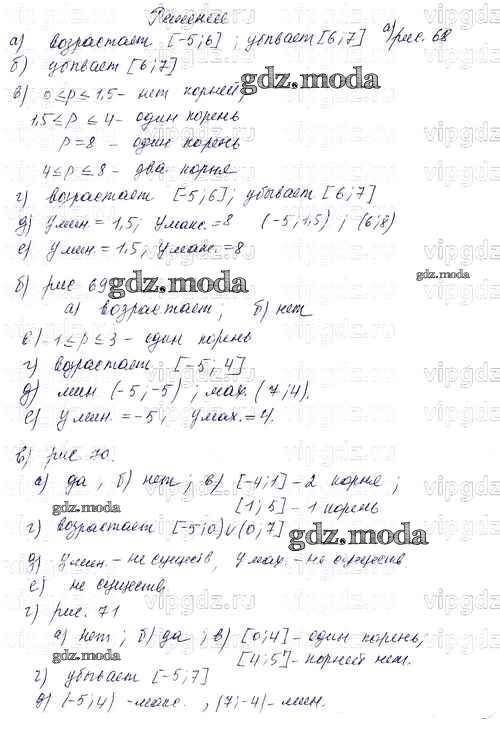 Решение
а) возрастает [-5;6]; убывает [6;7] а) рис. 68
б) убывает [6;7]
gdz.moda
в) 0≤p≤1,5 - нет корней,
1,5≤p≤4 - один корень
p=8 - один корень
4≤p≤8 - два корня
г) возрастает [-5;6]; убывает [6;7]
д) yмин.=1,5; yмакс.=8 (-5;1,5); (6;8)
е) yмин.=1,5; yмакс.=8
б) рис 69
gdz.moda
gdz.moda
а) возрастает; б) нет
в) -1≤p≤3 - один корень
г) возрастает [-5;4]
д) мин (-5;-5); мах. (7;4).
е) yмин.=-5; yмах.=4.
в) рис 70.
а) да, б) нет; в) [-4;1] - 2 корня;
gdz.moda
[1;5] - 1 корень
г) возрастает [-5;0)∪(0;7]
gdz.moda
д) yмин. - не существ, yмах. - не существ.
е) не существ.
г) рис. 71
а) нет; б) да; в) [0;4] - один корень;
gdz.moda
[4;5] - корней нет.
г) убывает [-5;7]
д) (-5;4) - макс., (7;-4) - мин.
vipgdz.ru